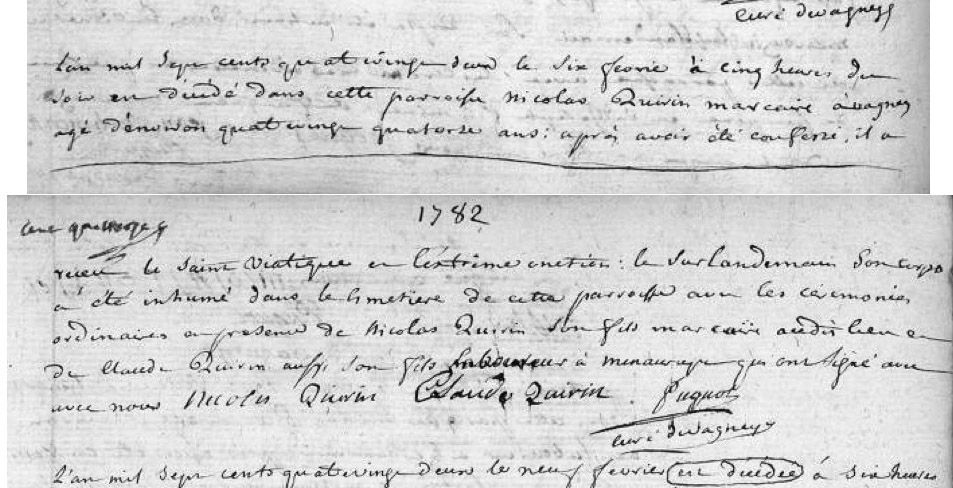 curé dwagney
L'an mil sept cents quatrevingt deux le six fevrie à cinq heures du
soir en décédé dans cette parroisse Nicolas Quirin marcaire à vagney
agé d'environ quatrevingt quatorse ans : après avoir été confessé, il a
1782
cent quatorze
receu le saint Viatique en l'extrême onction : le surlandemain son corps
a été inhumé dans le Cimetiere de cette parroisse avec les cérémonies
ordinaires en presence de Nicolas Quirin son fils marcaire audit lieu en
de Claude Quirin aussi son fils laboureur à menaurupt qui ont signé avec
avec nous Nicolas Quirin Claude Quirin
curé dwagney
L'an mil sept cents quatrevingt deux le neuf fevrier en décédée à six heures